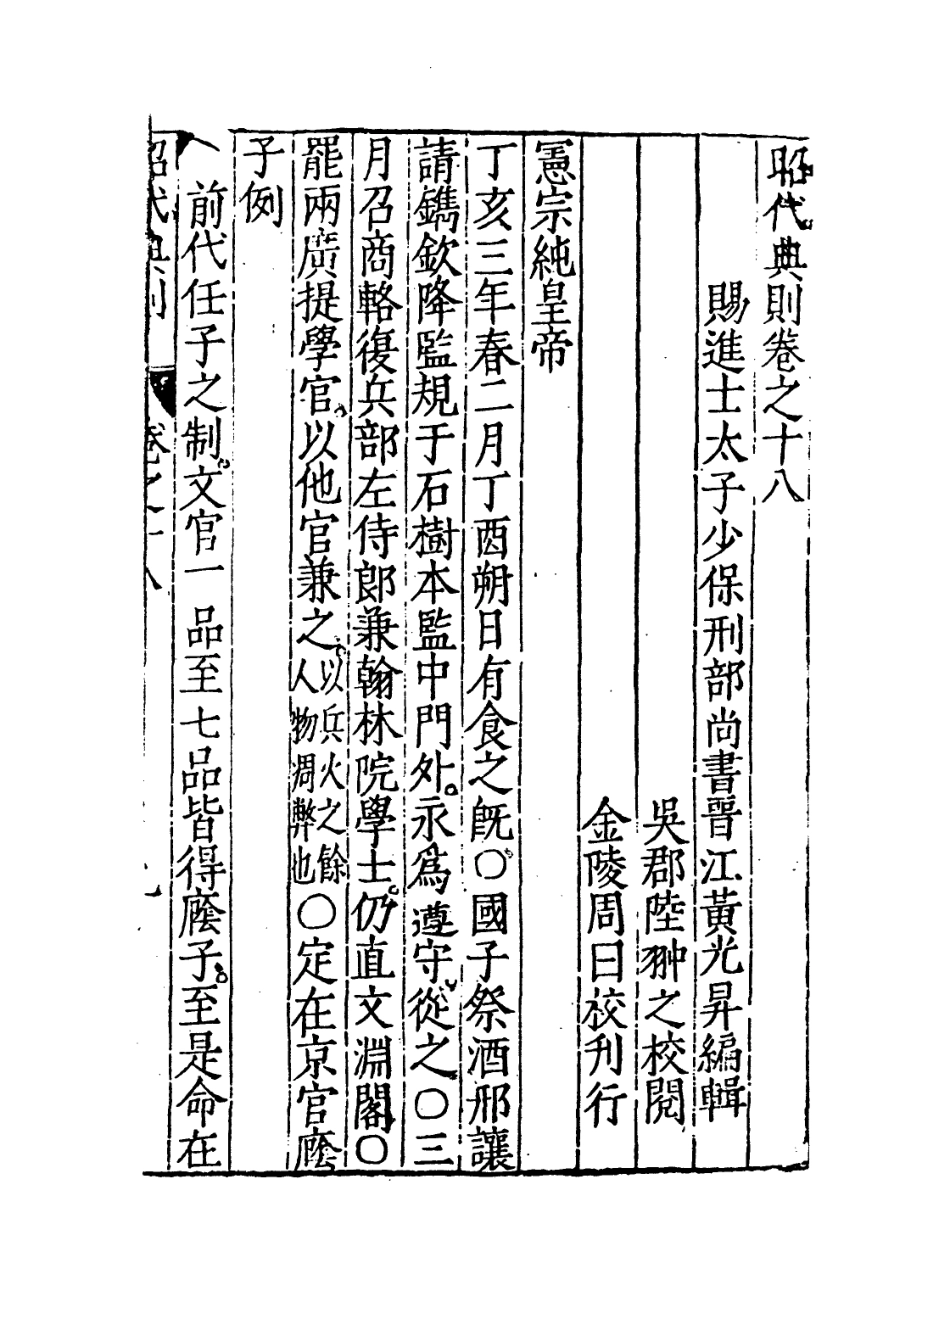 昭代典則卷之十八
賜進士太子少保刑部尚書晉江黃光昇編輯
吳郡陸翀之校閱
金陵周曰校刊行
憲宗純皇帝
丁亥三年春二月丁酉朔日有食之既○國子祭酒邢讓
請鐫欽降監規于石樹本監中門外。永爲遵守。從之。○三
月召商輅復兵部左侍郎兼翰林院學士。仍直文淵閣○
罷兩廣提學官。以他官兼之。以兵火之餘人物凋弊也○定在京官廕
子例
前代任子之制。文官一品至七品皆得廕子。至是命在
昭代典則 卷之十八